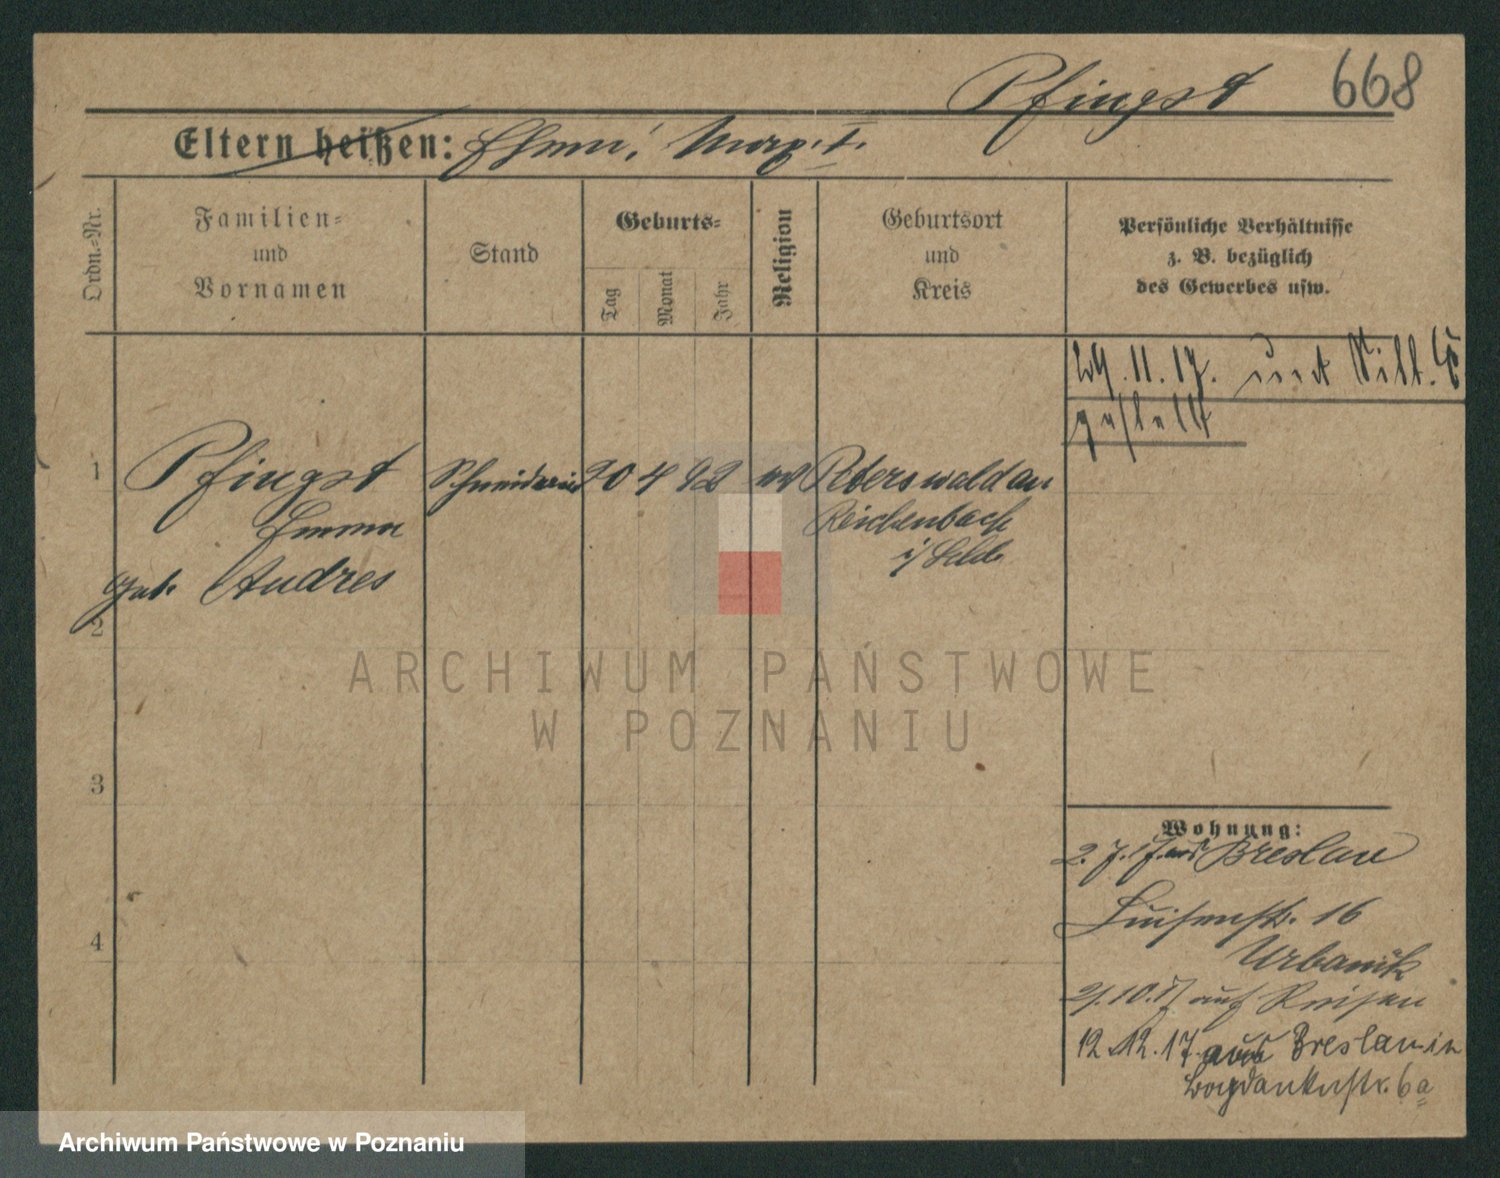 Pfingst 668
Eltern heißen:
Ordn.=Nr.
Familien=
und
Vornamen
Stand
Geburts=
Tag
Monat
Jahr
Religion
Geburtsort
und
Kreis
Persönliche Verhältnisse
z. B. bezüglich
des Gewerbes usw.
11. 17. und
gestellt
1 Pfingst Schneiderin 20 4 92 Peterswaldau
Emma Reichenbach
geb. Andres i/ Schl.
2
3
4
Wohnung:
2. 7. 17 aus Breslau
Luisenstr. 16
Urbanik
21. 10. 17 auf Reisen
12. 12. 17. aus Breslau in
Bogdankastr. 6a
ARCHIWUM PAŃSTWOWE
W POZNANIU
Archiwum Państwowe w Poznaniu